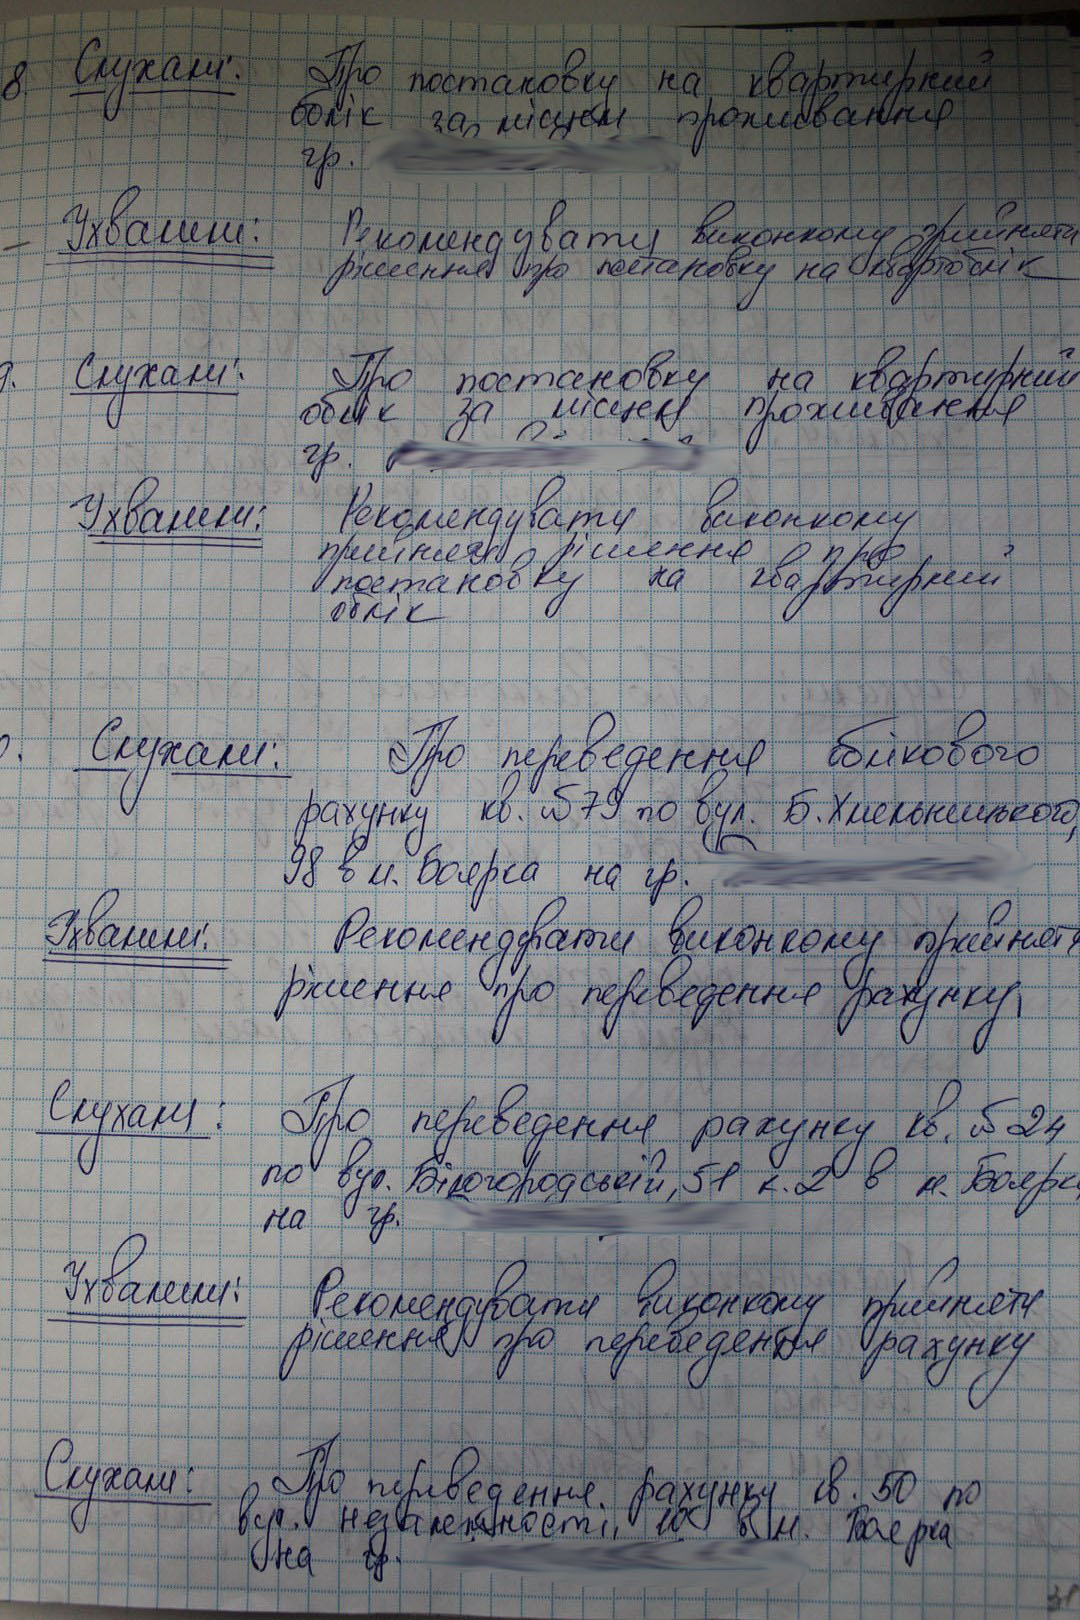 8. Слухали: Про постановку на квартирний
облік за місцем проживання
гр.
Ухвалили: Рекомендувати виконкому прийняти
рішення про постановку на квартоблік
9. Слухали: Про постановку на квартирний
облік за місцем проживання
гр.
Ухвалили: Рекомендувати виконкому
прийняти рішення про
постановку на квартирний
облік
Слухали: Про переведення облікового
рахунку кв. №79 по вул. Б.Хмельницького,
98 в м. Боярка на гр.
Ухвалили: Рекомендувати виконкому прийняти
рішення про переведення рахунку
Слухали: Про переведення рахунку кв. №24
по вул. Білогородській, 51 к.2 в м. Боярка
на гр.
Ухвалили: Рекомендувати виконкому прийняти
рішення про переведення рахунку
Слухали: Про переведення рахунку кв. 50 по
вул. Незалежності, в м. Боярка
на гр.